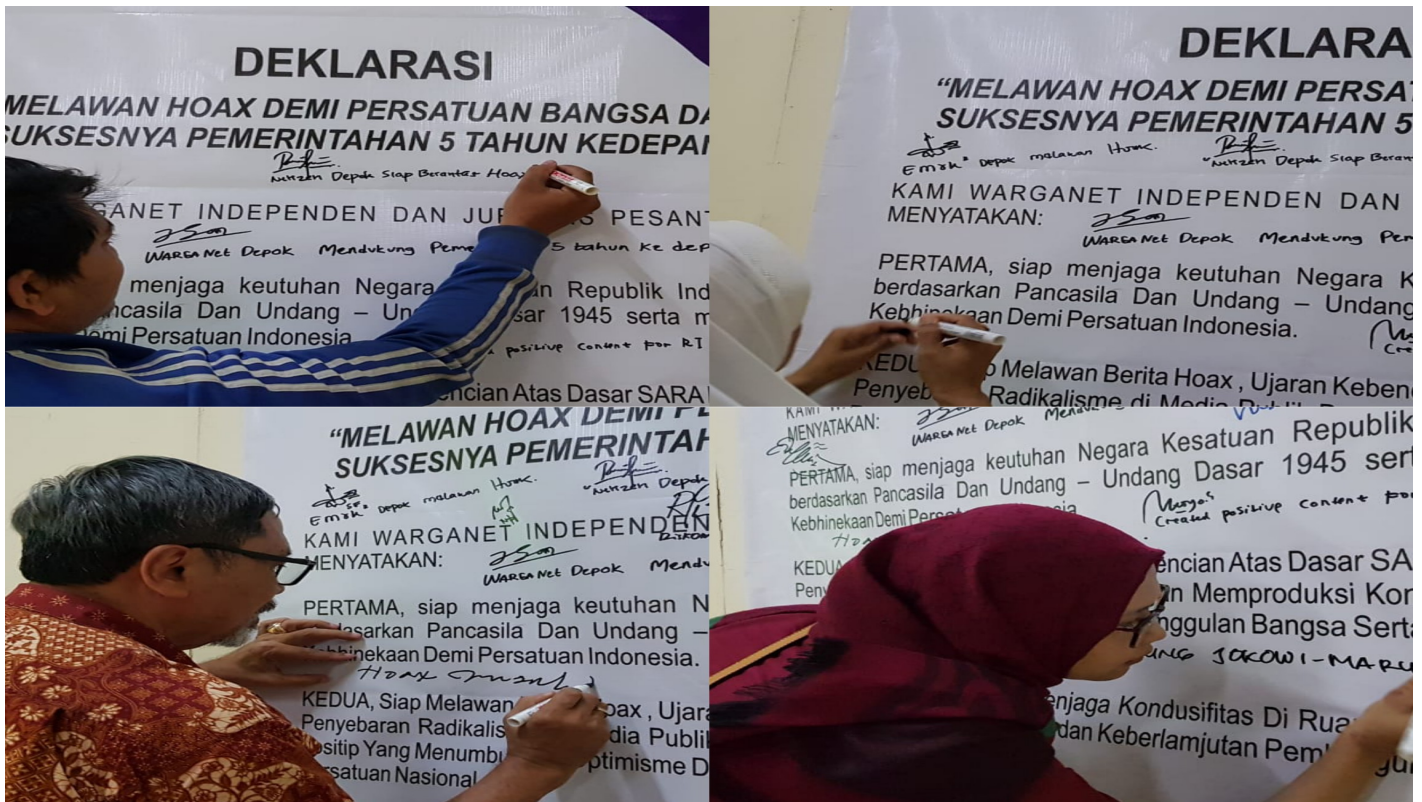 DEKLARASI
MELAWAN HOAX DEMI PERSATUAN BANGSA DA
SUKSESNYA PEMERINTAHAN 5 TAHUN KEDEPAN
Depok Siap Berantas Hoax
GANET INDEPENDEN DAN JUR IS PESANT
WARGANet Depok Mendukung Peme 5 tahun ke dep
menjaga keutuhan Negara n Republik Ind
ncasila Dan Undang – Un sar 1945 serta m
emi Persatuan Indonesia
positive content for RI
encian Atas Dasar SARA
DEKLARA
“MELAWAN HOAX DEMI PERSAT
SUKSESNYA PEMERINTAHAN 5
Depok malawan Hoax.
Depok Siap Beran
KAMI WARGANET INDEPENDEN DAN
MENYATAKAN:
WARGANet Depok Mendukung Pem
PERTAMA, siap menjaga keutuhan Negara K
berdasarkan Pancasila Dan Undang – Undang
Kebhinekaan Demi Persatuan Indonesia.
KEDU p Melawan Berita Hoax , Ujaran Keben
Penyeb Radikalisme di Media Publik
“MELAWAN HOAX DEMI PE
SUKSESNYA PEMERINTAH
Depok malawan Hoax.
Depok
KAMI WARGANET INDEPENDEN
MENYATAKAN:
WARGANet Depok Mendu
PERTAMA, siap menjaga keutuhan N
dasarkan Pancasila Dan Undang –
Kebhinekaan Demi Persatuan Indonesia.
Hoax
KEDUA, Siap Melawan oax , Ujara
Penyebaran Radikalis dia Publik
ositip Yang Menumbu ptimisme D
rsatuan Nasional
KAMI W
MENYATAKAN:
WARGANet Depok Mendu
PERTAMA, siap menjaga keutuhan Negara Kesatuan Republik
berdasarkan Pancasila Dan Undang – Undang Dasar 1945 sert
Kebhinekaan Demi Persat esia
Created positive content for
KEDUA
encian Atas Dasar SA
Peny n Memproduksi Kon
nggulan Bangsa Serta
UNG JOKOWI-MARU
enjaga Kondusifitas Di Rua
dan Keberlamjutan Pem gu